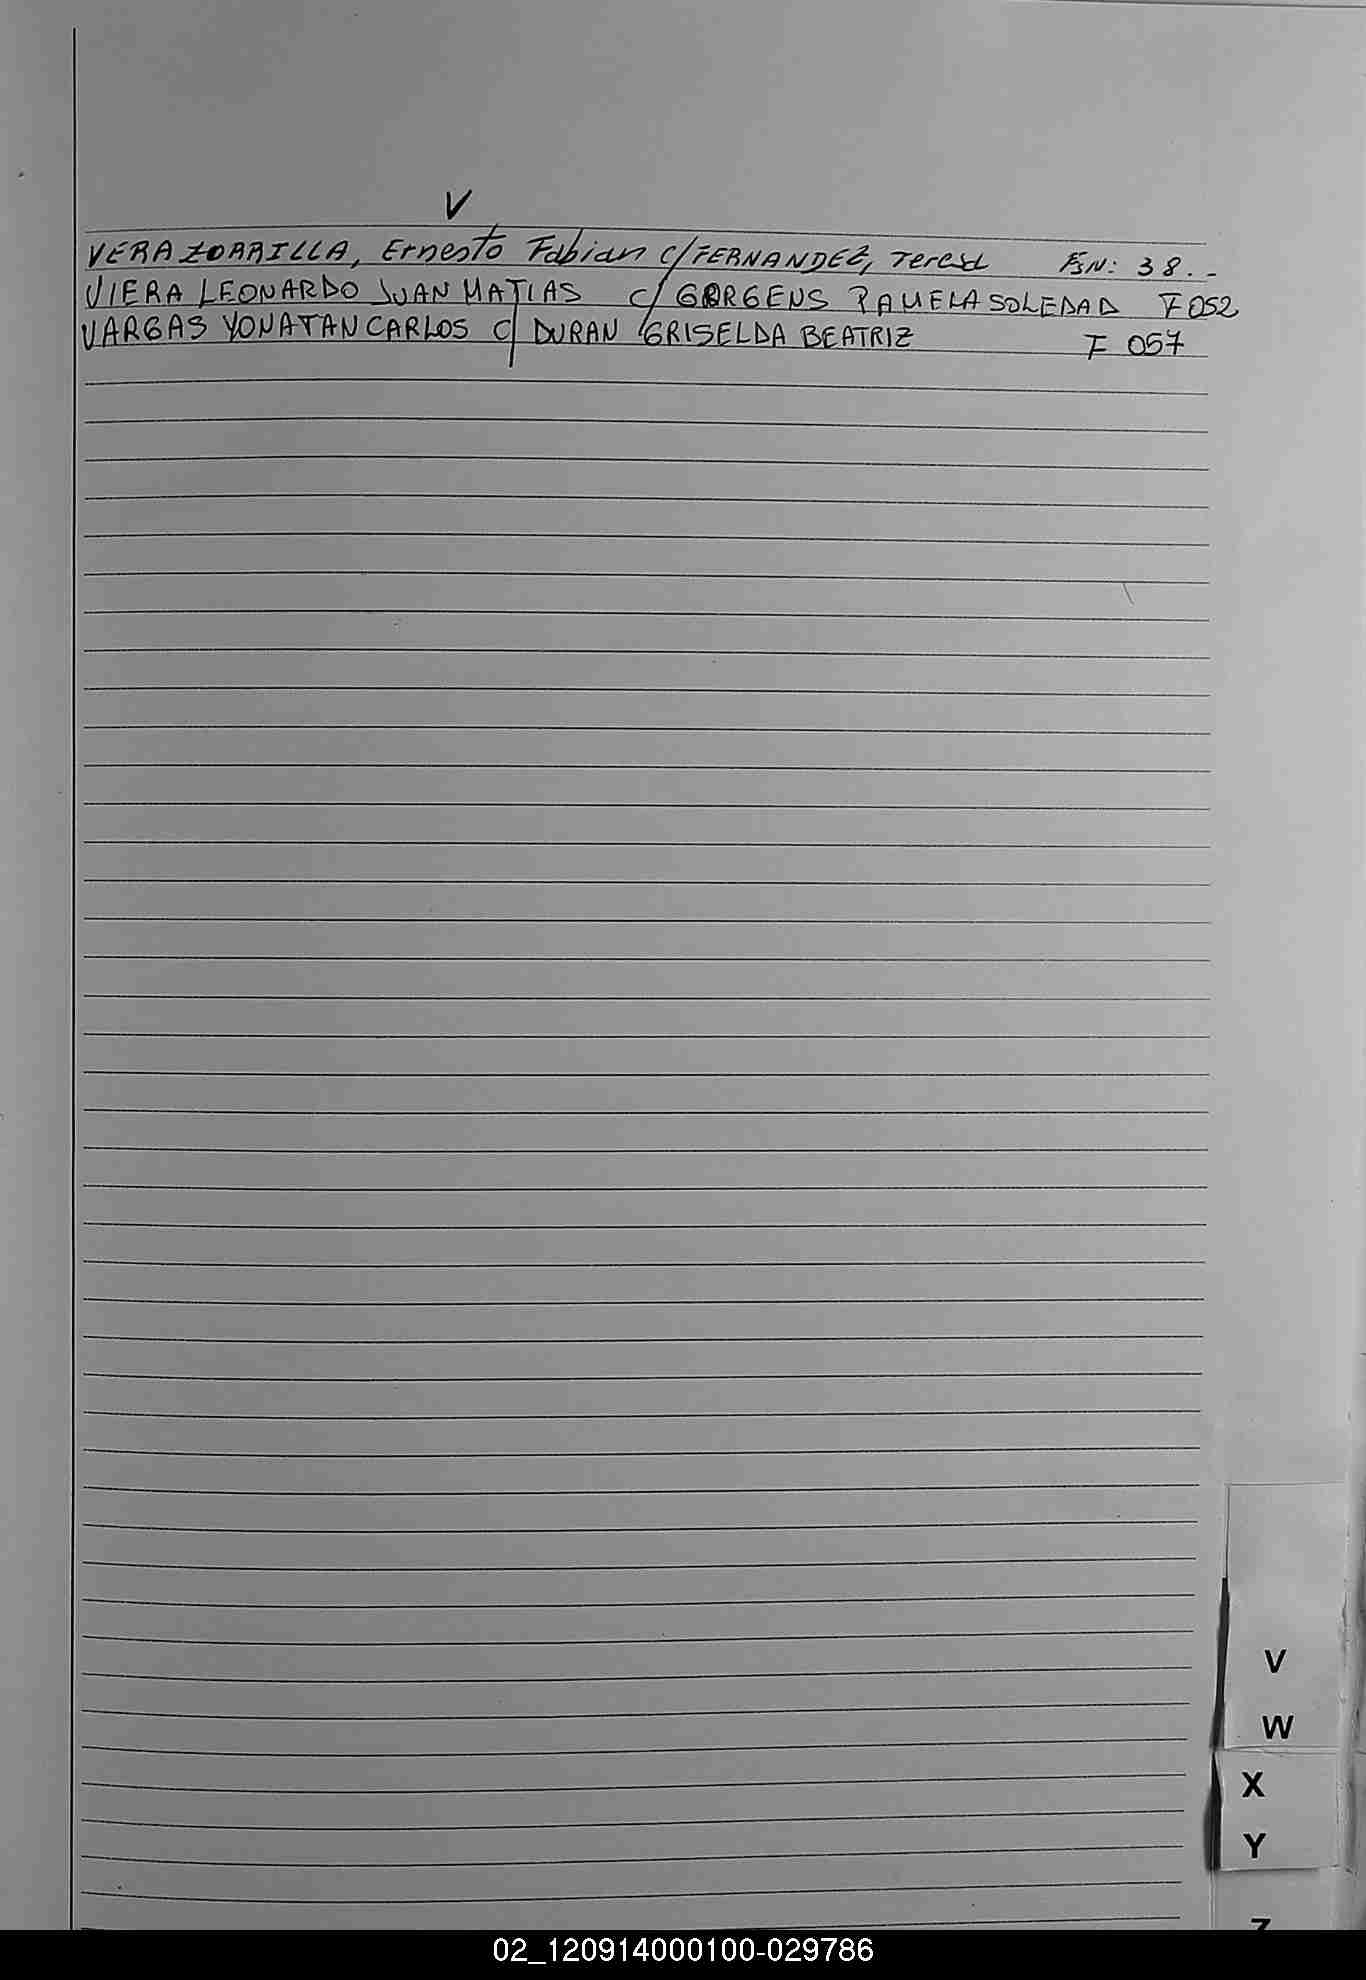 V
VERA ZORRILLA, Ernesto Fabian c/ FERNANDEZ, Teresa FSN: 38.-
VIERA LEONARDO JUAN MATIAS c/ GORGENS PAMELA SOLEDAD F 052
VARGAS YONATAN CARLOS c/ DURAN GRISELDA BEATRIZ F 057
V
W
X
Y
Z
02_120914000100-029786